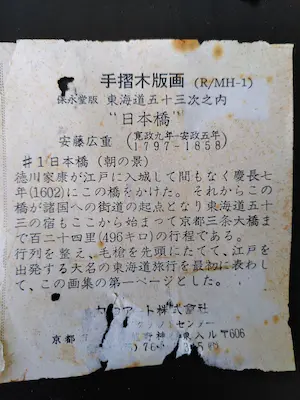 手摺木版画 (R/MH-1)
保永堂版 東海道五十三次之内
"日本橋"
安藤広重 (寛政九年−安政五年)
(1797-1858)
#1日本橋 (朝の景)
徳川家康が江戸に入城して間もなく慶長七
年(1602)にこの橋をかけた。それからこの
橋が諸国への街道の起点となり東海道五十
三の宿もここから始まって京都三条大橋ま
で百二十四里(496キロ)の行程である。
行列を整え、毛槍を先頭にたてて、江戸を
出発する大名の東海道旅行を最初に表わし
て、この画集の第一ページとした。
アート株式会社
センター
京都 神 東入ル 〒606